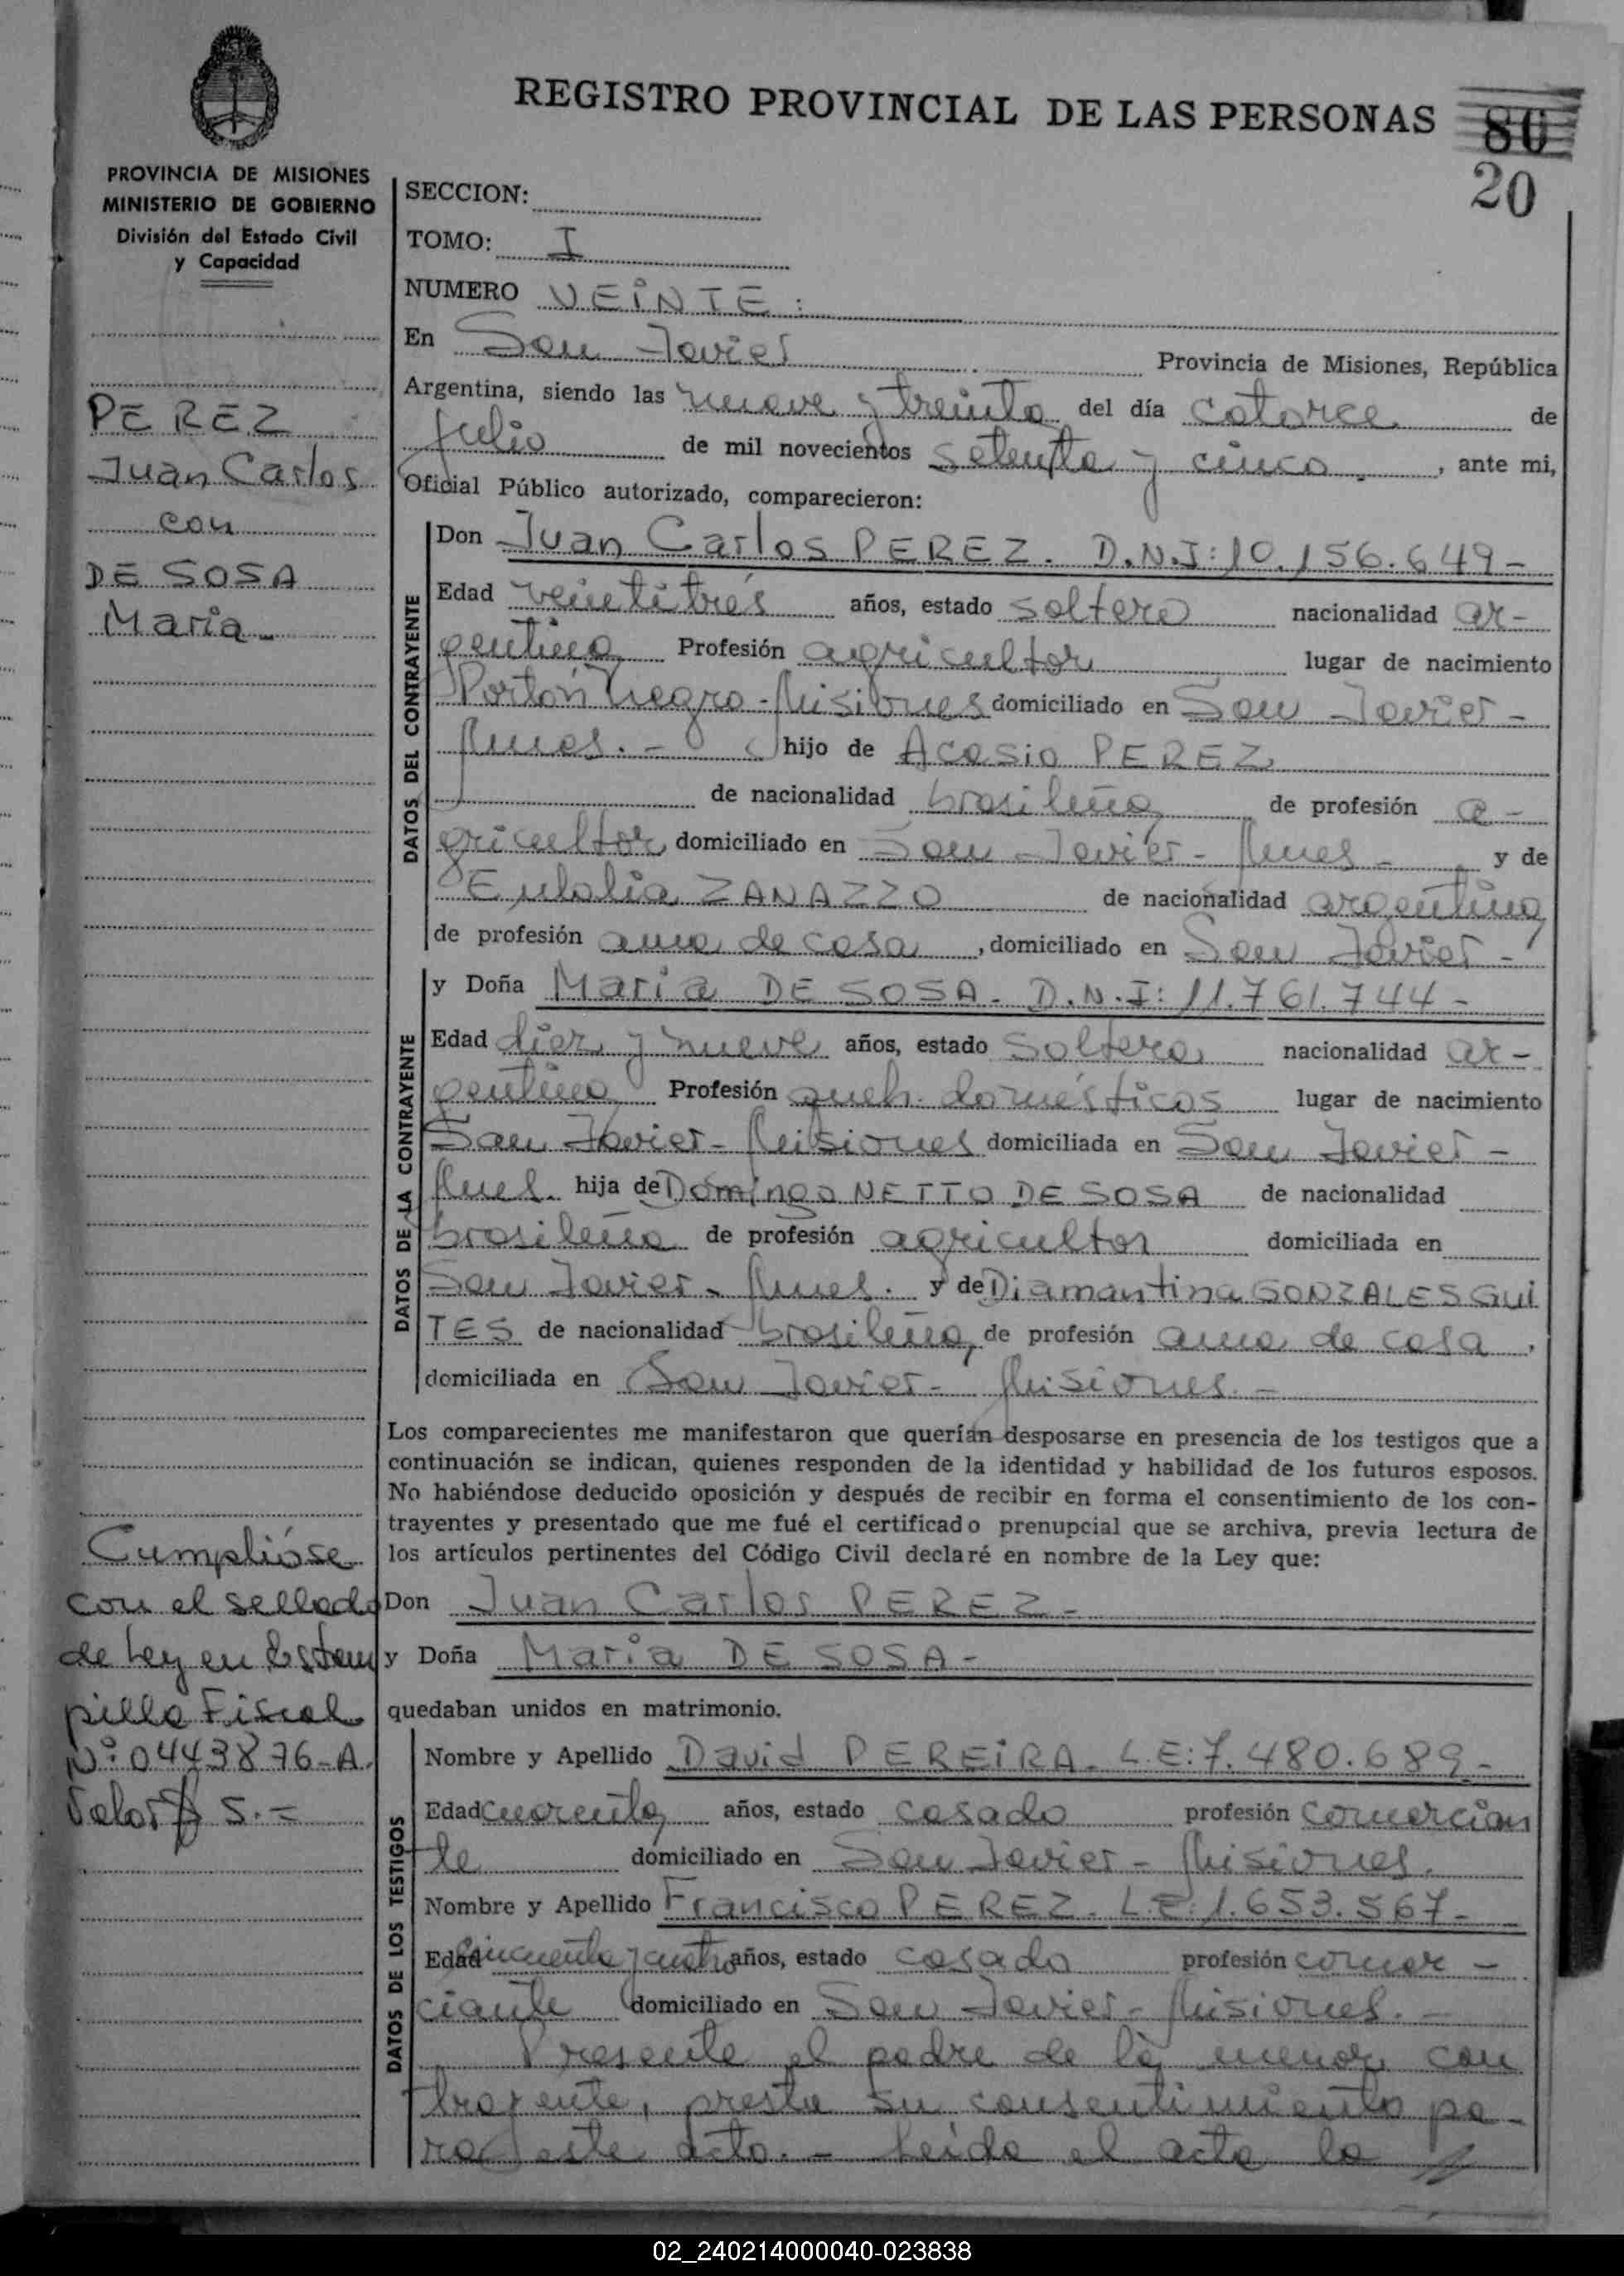 REGISTRO PROVINCIAL DE LAS PERSONAS
80
20
PROVINCIA DE MISIONES
MINISTERIO DE GOBIERNO
División del Estado Civil
y Capacidad
PEREZ
Juan Carlos
con
DE SOSA
Maria -
Cumplióse
con el sellado
de Ley en Estam
pilla Fiscal
Nº: 0443876-A.
Valor $ 5.=
SECCION:
TOMO: I
NUMERO VEINTE:
En San Javier Provincia de Misiones, República
Argentina, siendo las nueve y treinta del día catorce de
julio de mil novecientos setenta y cinco, ante mi,
Oficial Público autorizado, comparecieron:
DATOS DEL CONTRAYENTE
Don Juan Carlos PEREZ. D.N.I: 10.156.649-
Edad veintitrés años, estado soltero nacionalidad ar-
gentina Profesión agricultor lugar de nacimiento
Portón Negro - Misiones domiciliado en San Javier -
Mnes. - hijo de Acasio PEREZ
de nacionalidad brasileña de profesión a-
gricultor domiciliado en San Javier - Mnes - y de
Eulalia ZANAZZO de nacionalidad argentina,
de profesión ama de casa, domiciliado en San Javier -
DATOS DE LA CONTRAYENTE
y Doña Maria DE SOSA - D.N.I: 11.761.744 -
Edad diez y nueve años, estado soltera nacionalidad ar-
gentina Profesión queh. domésticos lugar de nacimiento
San Javier - Misiones domiciliada en San Javier -
Mnes. hija de Domingo NETTO DE SOSA de nacionalidad
brasileña de profesión agricultor domiciliada en
San Javier - Mnes. y de Diamantina GONZALES GUI
TES de nacionalidad brasileña, de profesión ama de casa,
domiciliada en San Javier - Misiones. -
Los comparecientes me manifestaron que querían desposarse en presencia de los testigos que a
continuación se indican, quienes responden de la identidad y habilidad de los futuros esposos.
No habiéndose deducido oposición y después de recibir en forma el consentimiento de los con-
trayentes y presentado que me fué el certificado prenupcial que se archiva, previa lectura de
los artículos pertinentes del Código Civil declaré en nombre de la Ley que:
Don Juan Carlos PEREZ -
y Doña Maria DE SOSA -
quedaban unidos en matrimonio.
DATOS DE LOS TESTIGOS
Nombre y Apellido David PEREIRA. L.E: 7.480.689 -
Edad cuarenta años, estado casado profesión comercian
te domiciliado en San Javier - Misiones.
Nombre y Apellido Francisco PEREZ. L.E: 1.653.567-
Edad cincuenta y cuatro años, estado casado profesión comer -
ciante domiciliado en San Javier - Misiones. -
Presente el padre de la menor con
trayente, presta su consentimiento pa-
ra este acto. - Leída el acta la
02_240214000040-023838